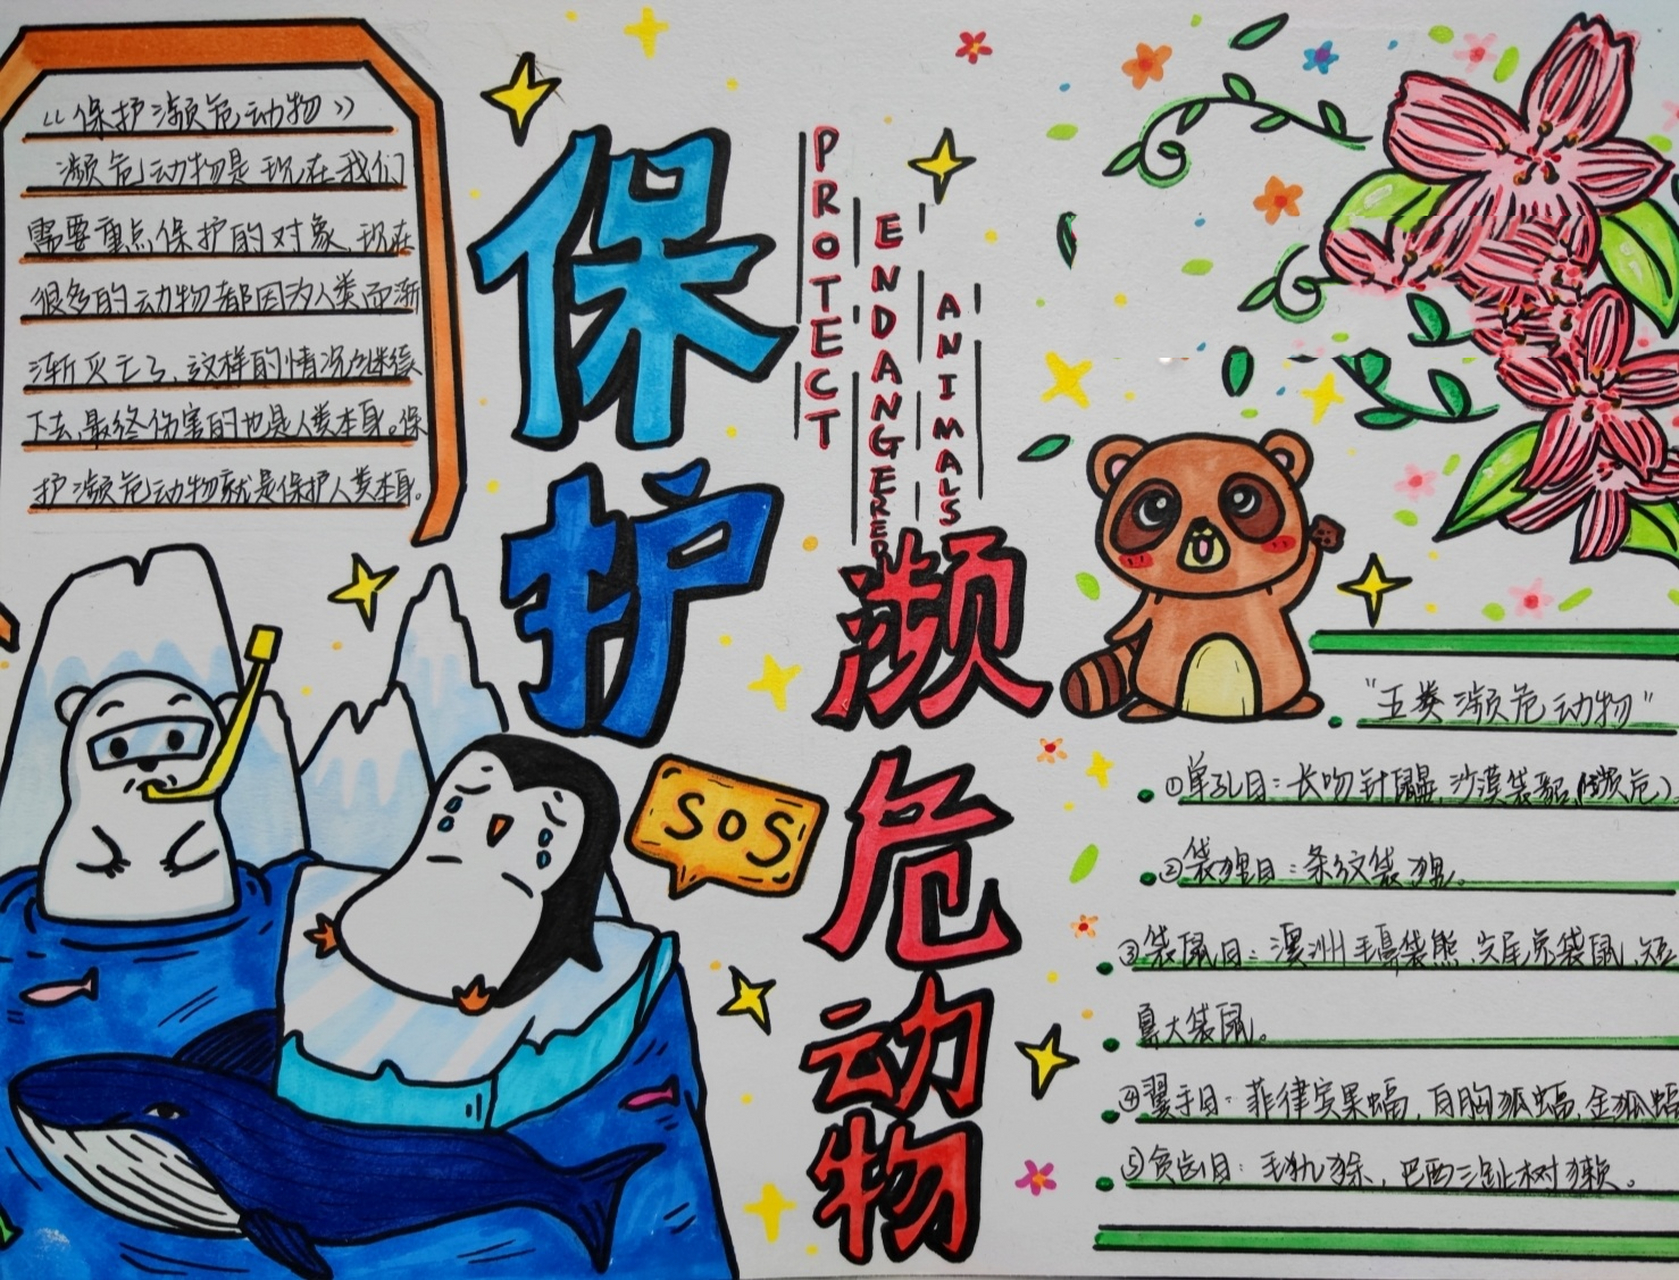 《保护濒危动物》
濒危动物是现在我们
需要重点保护的对象、现在
很多的动物都因为人类而渐
渐灭亡了、这样的情况继续
下去、最终伤害的也是人类本身。保
护濒危动物就是保护人类本身。
保护
PROTECT
ENDANGERED
ANIMALS
濒危动物
SOS
“五类濒危动物”
①单孔目：长吻针鼹、沙漠袋貂、(濒危)
②袋狸目：条纹袋狸。
③袋鼠目：澳洲毛鼻袋熊、尖尾兔袋鼠、短
鼻大袋鼠。
④翼手目：菲律宾果蝠、百胸狐蝠、金狐蝠
⑤贫齿目：毛犰狳、巴西三趾树獭。